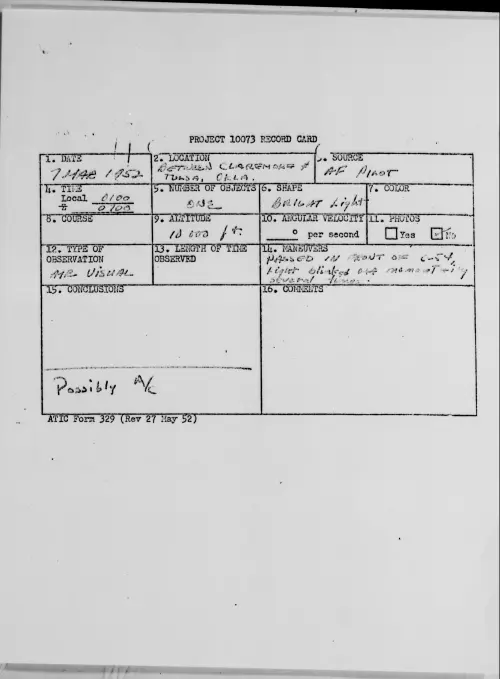 PROJECT 10073 RECORD CARD
1. DATE
7 MAR 1952
2. LOCATION
BETWEEN CLAREMORE &
TULSA, OKLA.
3. SOURCE
AF PILOT
4. TIME
Local 0100
Z 0700
5. NUMBER OF OBJECTS
ONE
6. SHAPE
BRIGHT Light
7. COLOR
8. COURSE
9. ALTITUDE
10 000 ft.
10. ANGULAR VELOCITY
° per second
11. PHOTOS
Yes No
12. TYPE OF
OBSERVATION
AIR VISUAL
13. LENGTH OF TIME
OBSERVED
14. MANEUVERS
PASSED IN FRONT OF C-54,
Light blinked off
several times.
15. CONCLUSIONS
Possibly A/C
16. COMMENTS
ATIC Form 329 (Rev 27 May 52)